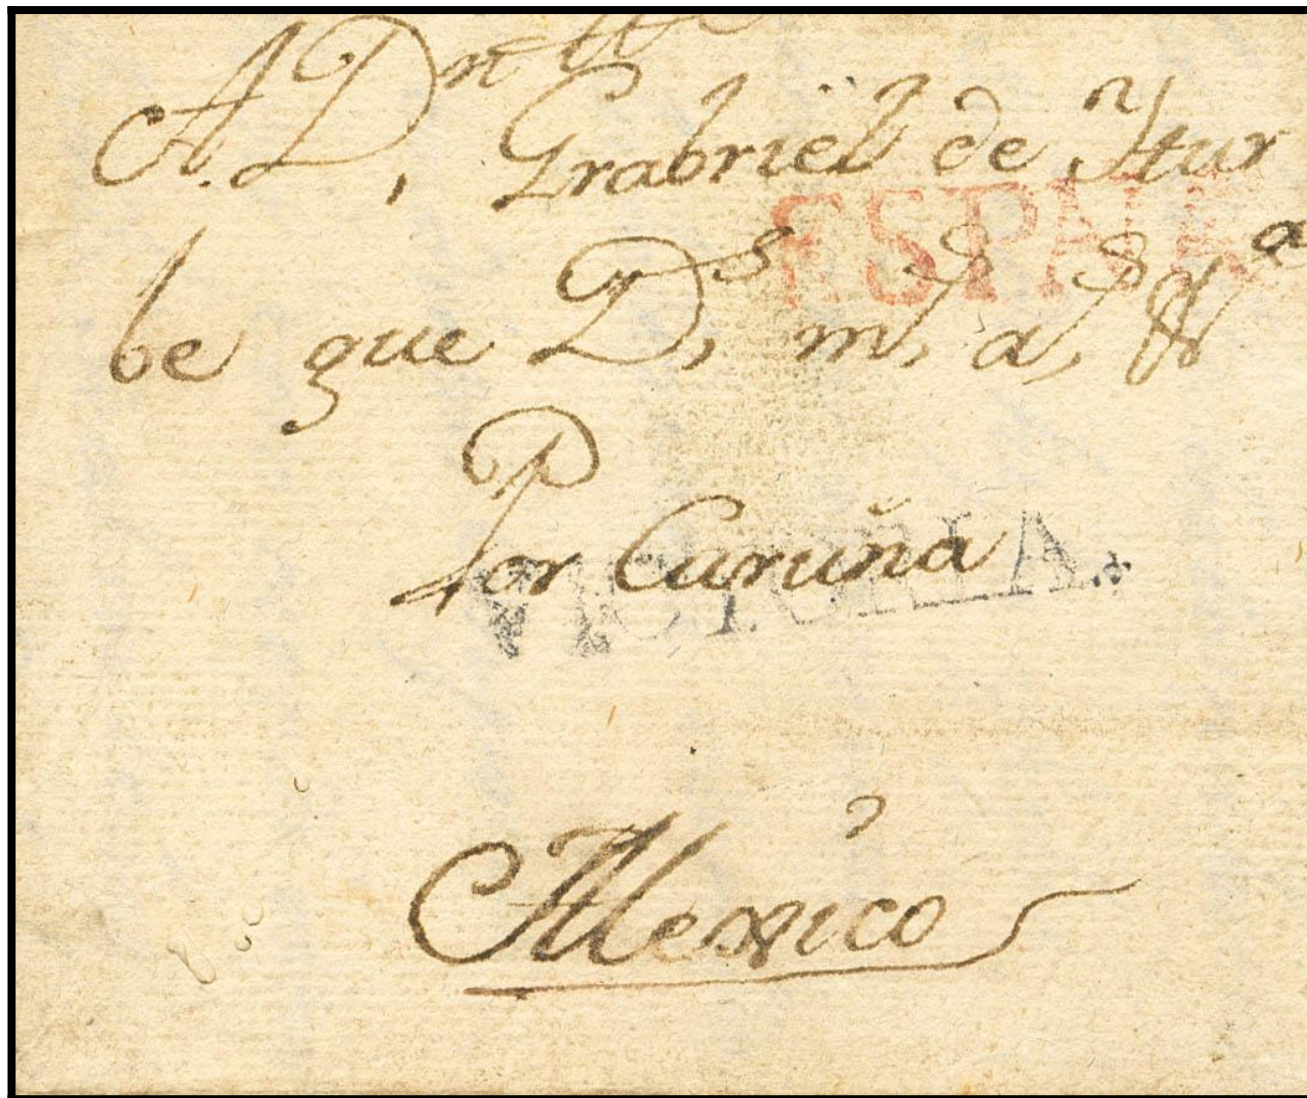 A D.ⁿ Gabriel de Ytur
ESPAÑA
be que D.ˢ m.ˢ a.ˢ
Por Curuña
VICTORIA.
Mexico